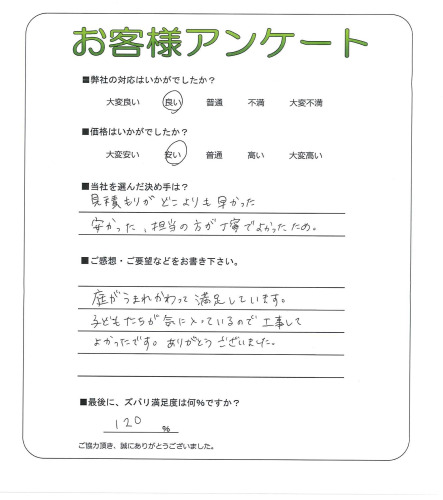 お客様アンケート
■弊社の対応はいかがでしたか？
大変良い 良い 普通 不満 大変不満
■価格はいかがでしたか？
大変安い 安い 普通 高い 大変高い
■当社を選んだ決め手は？
見積もりがどこよりも早かった
安かった、担当の方が丁寧でよかったため。
■ご感想・ご要望などをお書き下さい。
庭がうまれかわって満足しています。
子どもたちが気に入っているので工事して
よかったです。ありがとうございました。
■最後に、ズバリ満足度は何%ですか？
120 %
ご協力頂き、誠にありがとうございました。